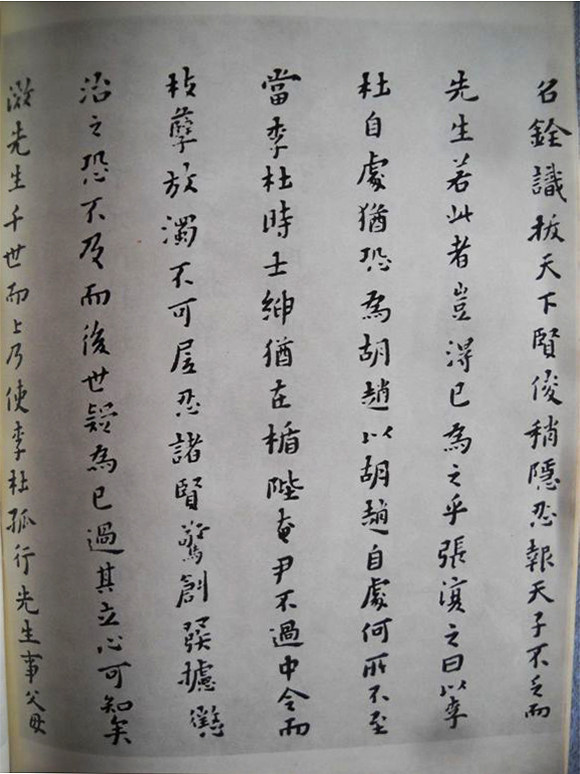 名銓識拔天下賢俊稍隱忍報天子不乏而
先生若此者豈得已為之乎張湏之曰以李
杜自處猶恐為胡趙以胡趙自處何所不至
當李杜時士紳猶在楯陛奄尹不過中令而
枝孽放濁不可居忍諸賢驚創發攄懲
治之恐不及而後世疑為已過其立心可知矣
激先生千世而上乃使李杜孤行先生事父母